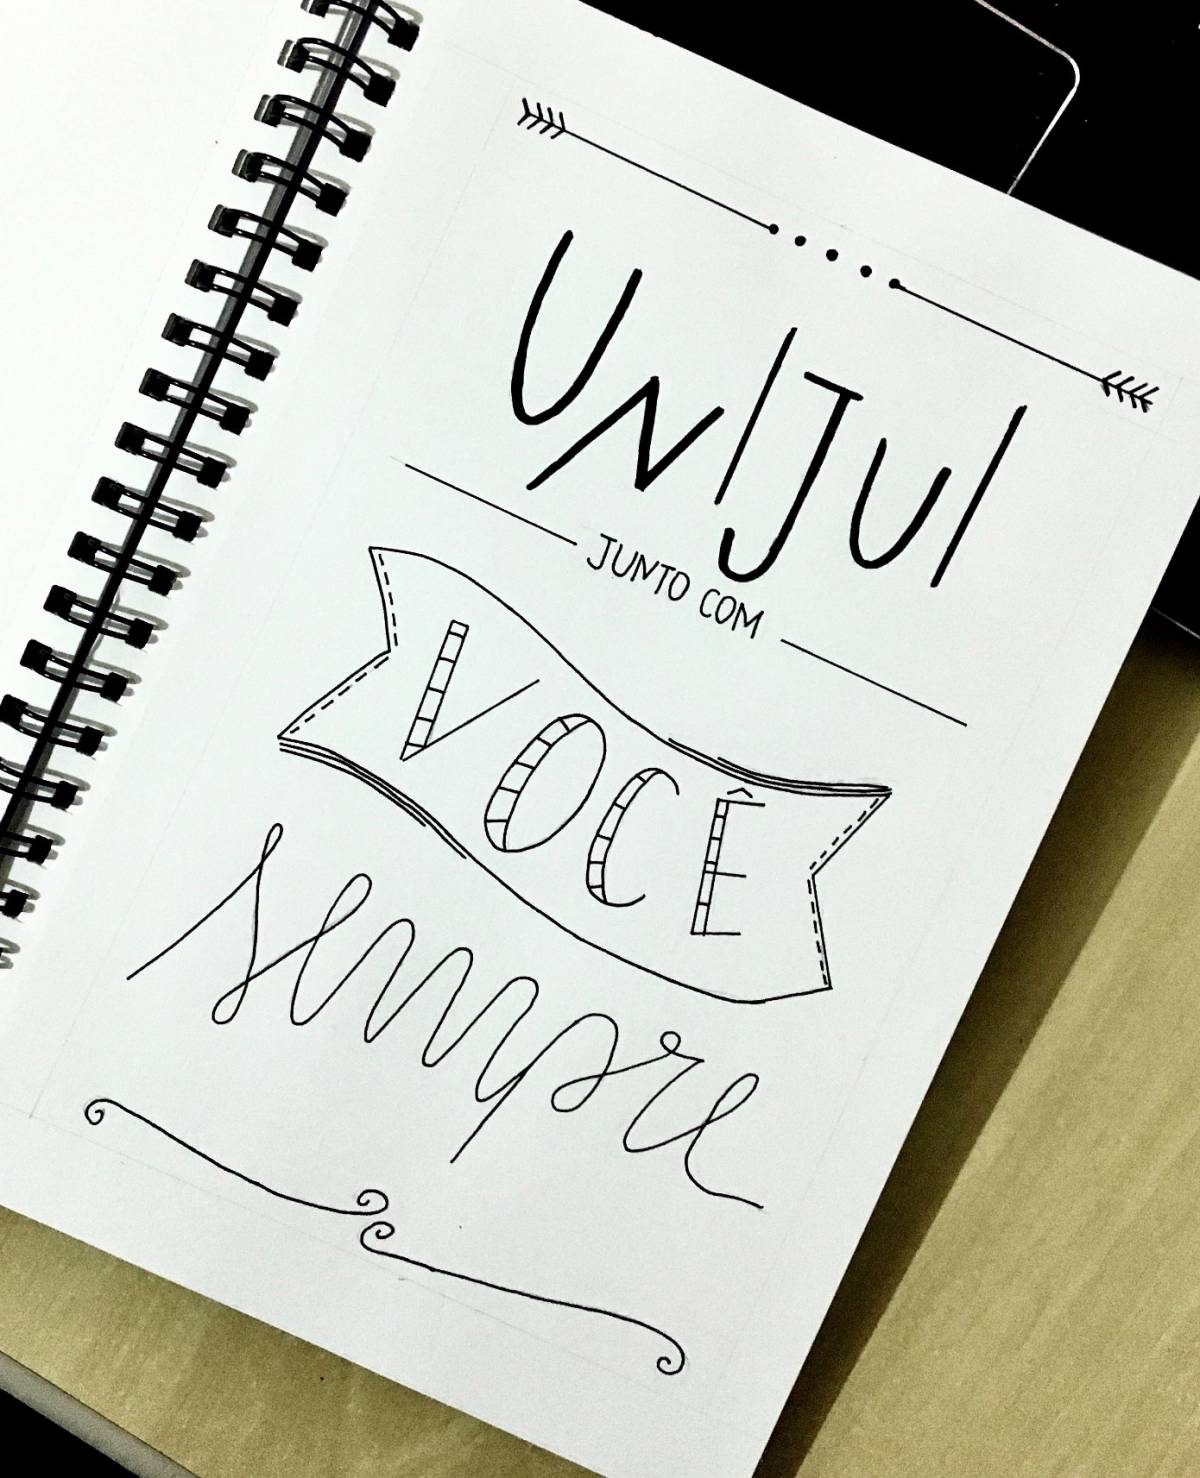 UNIJUI
JUNTO COM
VOCÊ
sempre